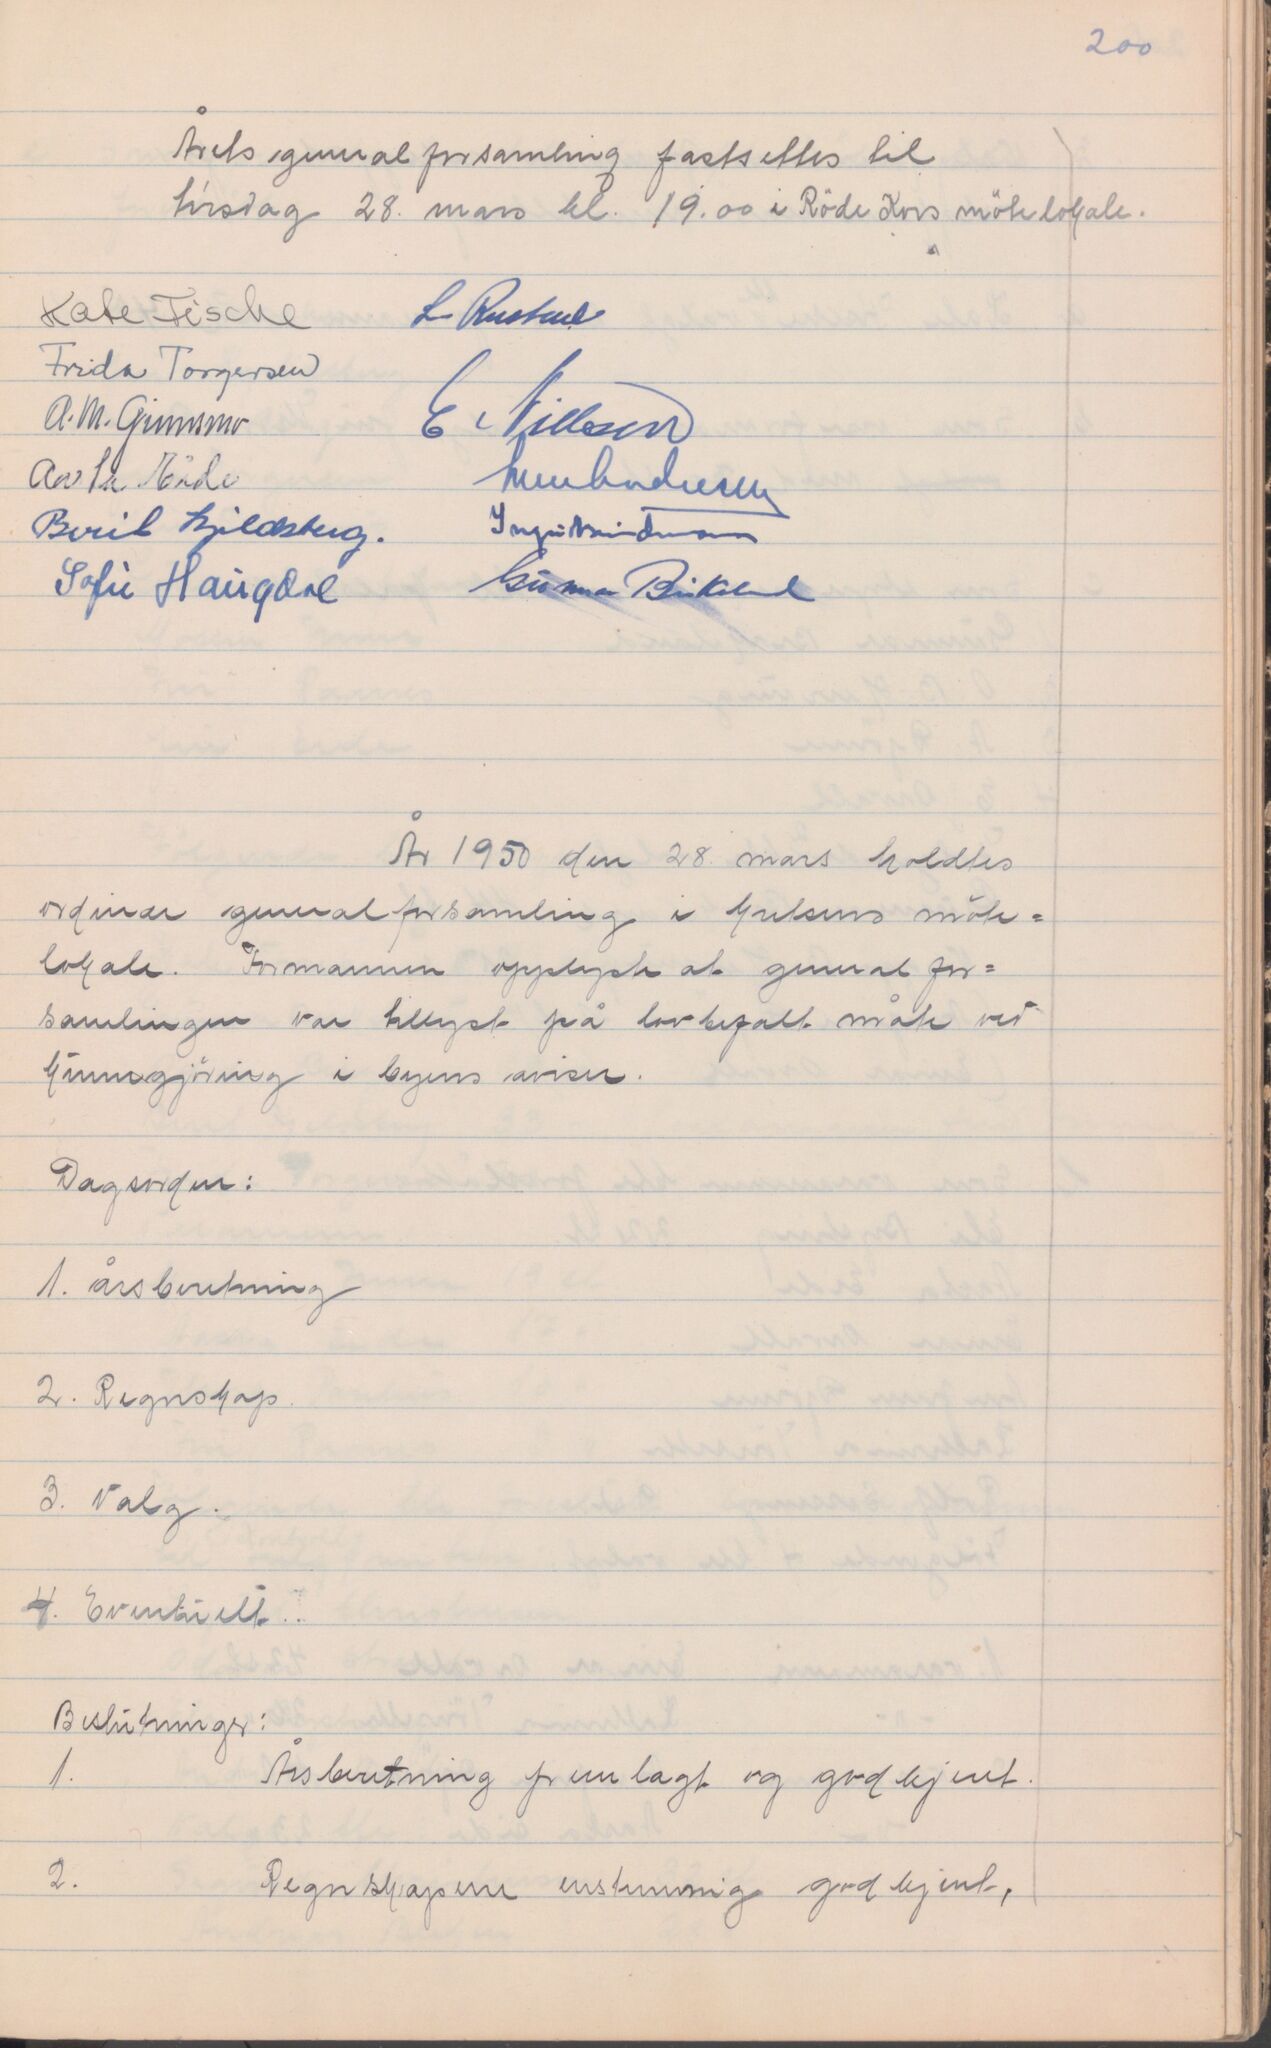 200
Årets generalforsamling fastsettes til
tirsdag 28. mars kl. 19.00 i Röde Kors mötelokale.
Kate Fische L. Rustad
Frida Torgersen
A. M. Gimmsmo E. Nilsson
Röde Andresen
Berit Kjildsberg.
Sofie Haugdal Gunnar Birkeland
År 1950 den 28. mars holdtes
ordinær generalforsamling i kretsens möte=
lokale. Formannen opplyste at general for=
samlingen var tillyst på lovbefalt måte ved
kunngjöring i byens aviser.
Dagsorden:
1. årsberetning
2. Regnskap.
3. Valg.
4. Eventuelt.
Beslutninger:
1. Årsberetning fremlagt og godkjent.
2. Regnskapene enstemmig godkjent,